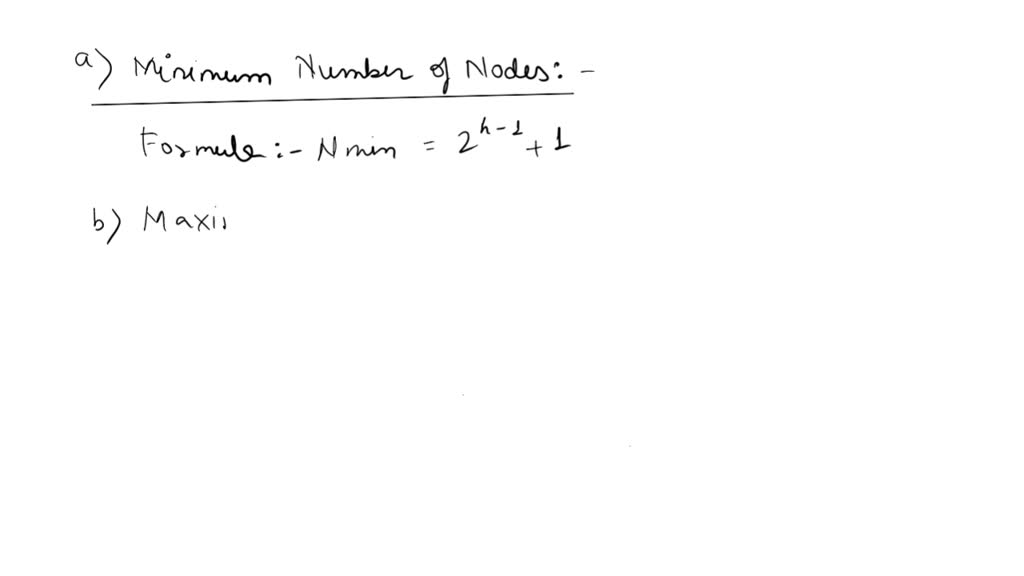 a) Minimum Number of Nodes: -
Formule :- N min = 2^{h-1} + 1
b) Maxi